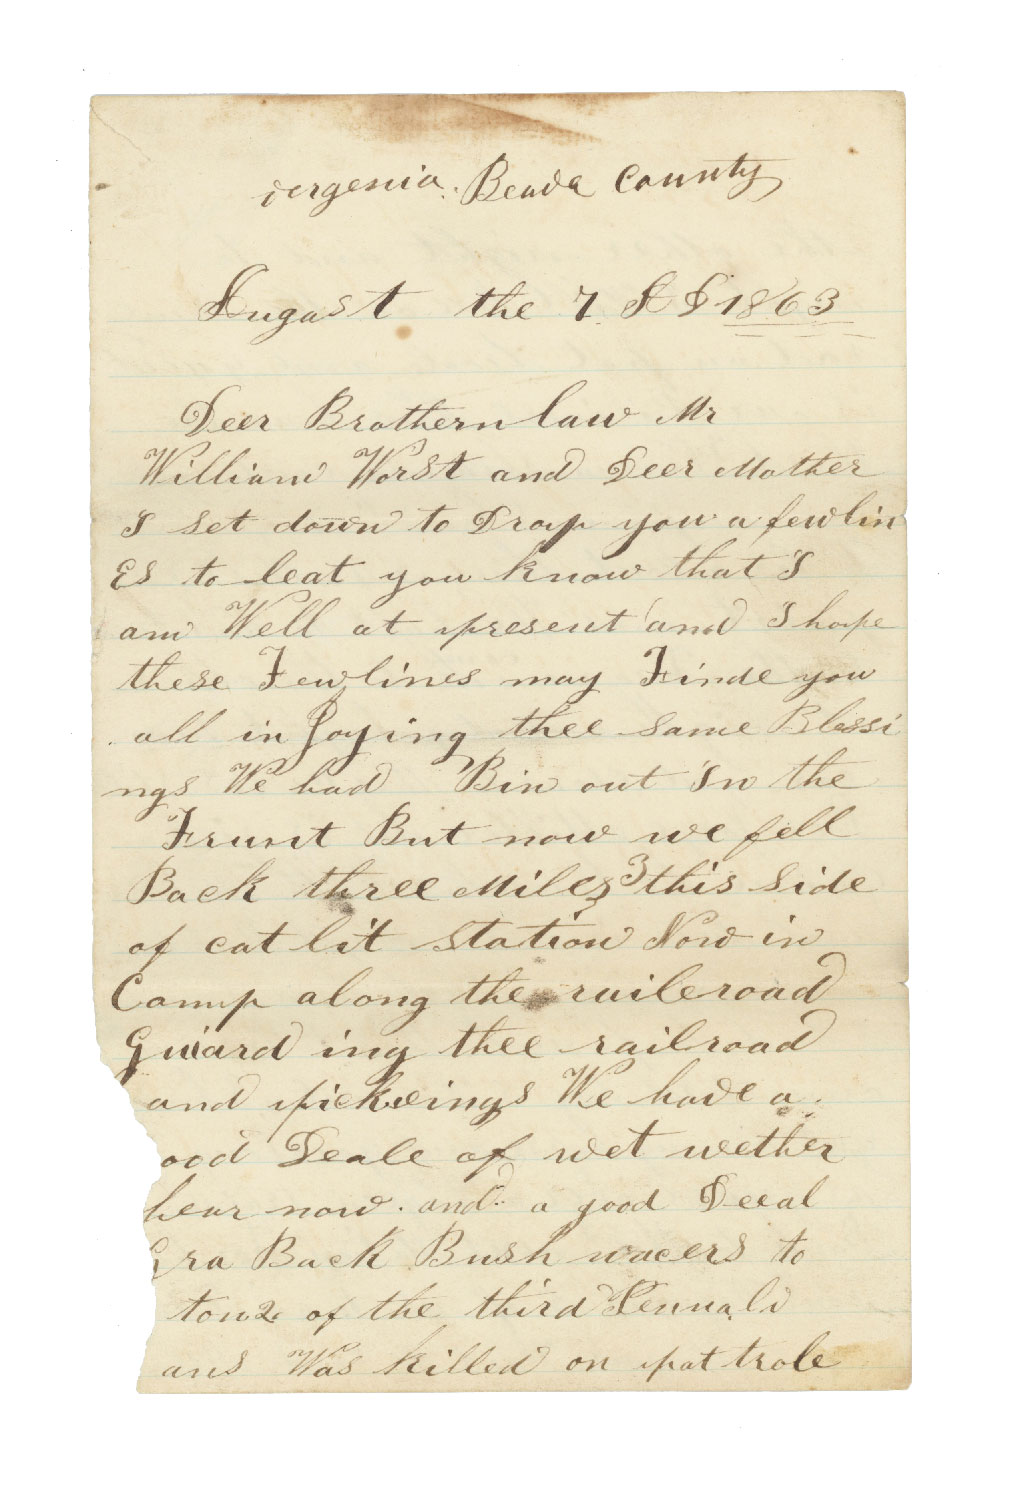 vergenia. Beada County
August the 7 AD 1863
Deer Brothern law Mr
William Worst and Deer Mother
I set down to Drop you a fewlin
Es to leat you know that I
am Well at present and I hope
these Fewlines may Finde you
all in Joying thee same Blessi
ngs We had Bin out In the
Frunt But now we fell
Back three Miles 3 this side
of cat lit station Now in
Camp along the raileroad
Guiard ing thee railroad
and pickeings We have a
ood Deale of wet wether
hear now. and a good Deeal
Gra Back Bush wacers to
ton 2 of the third Pennali
ans Was killed on pat trole